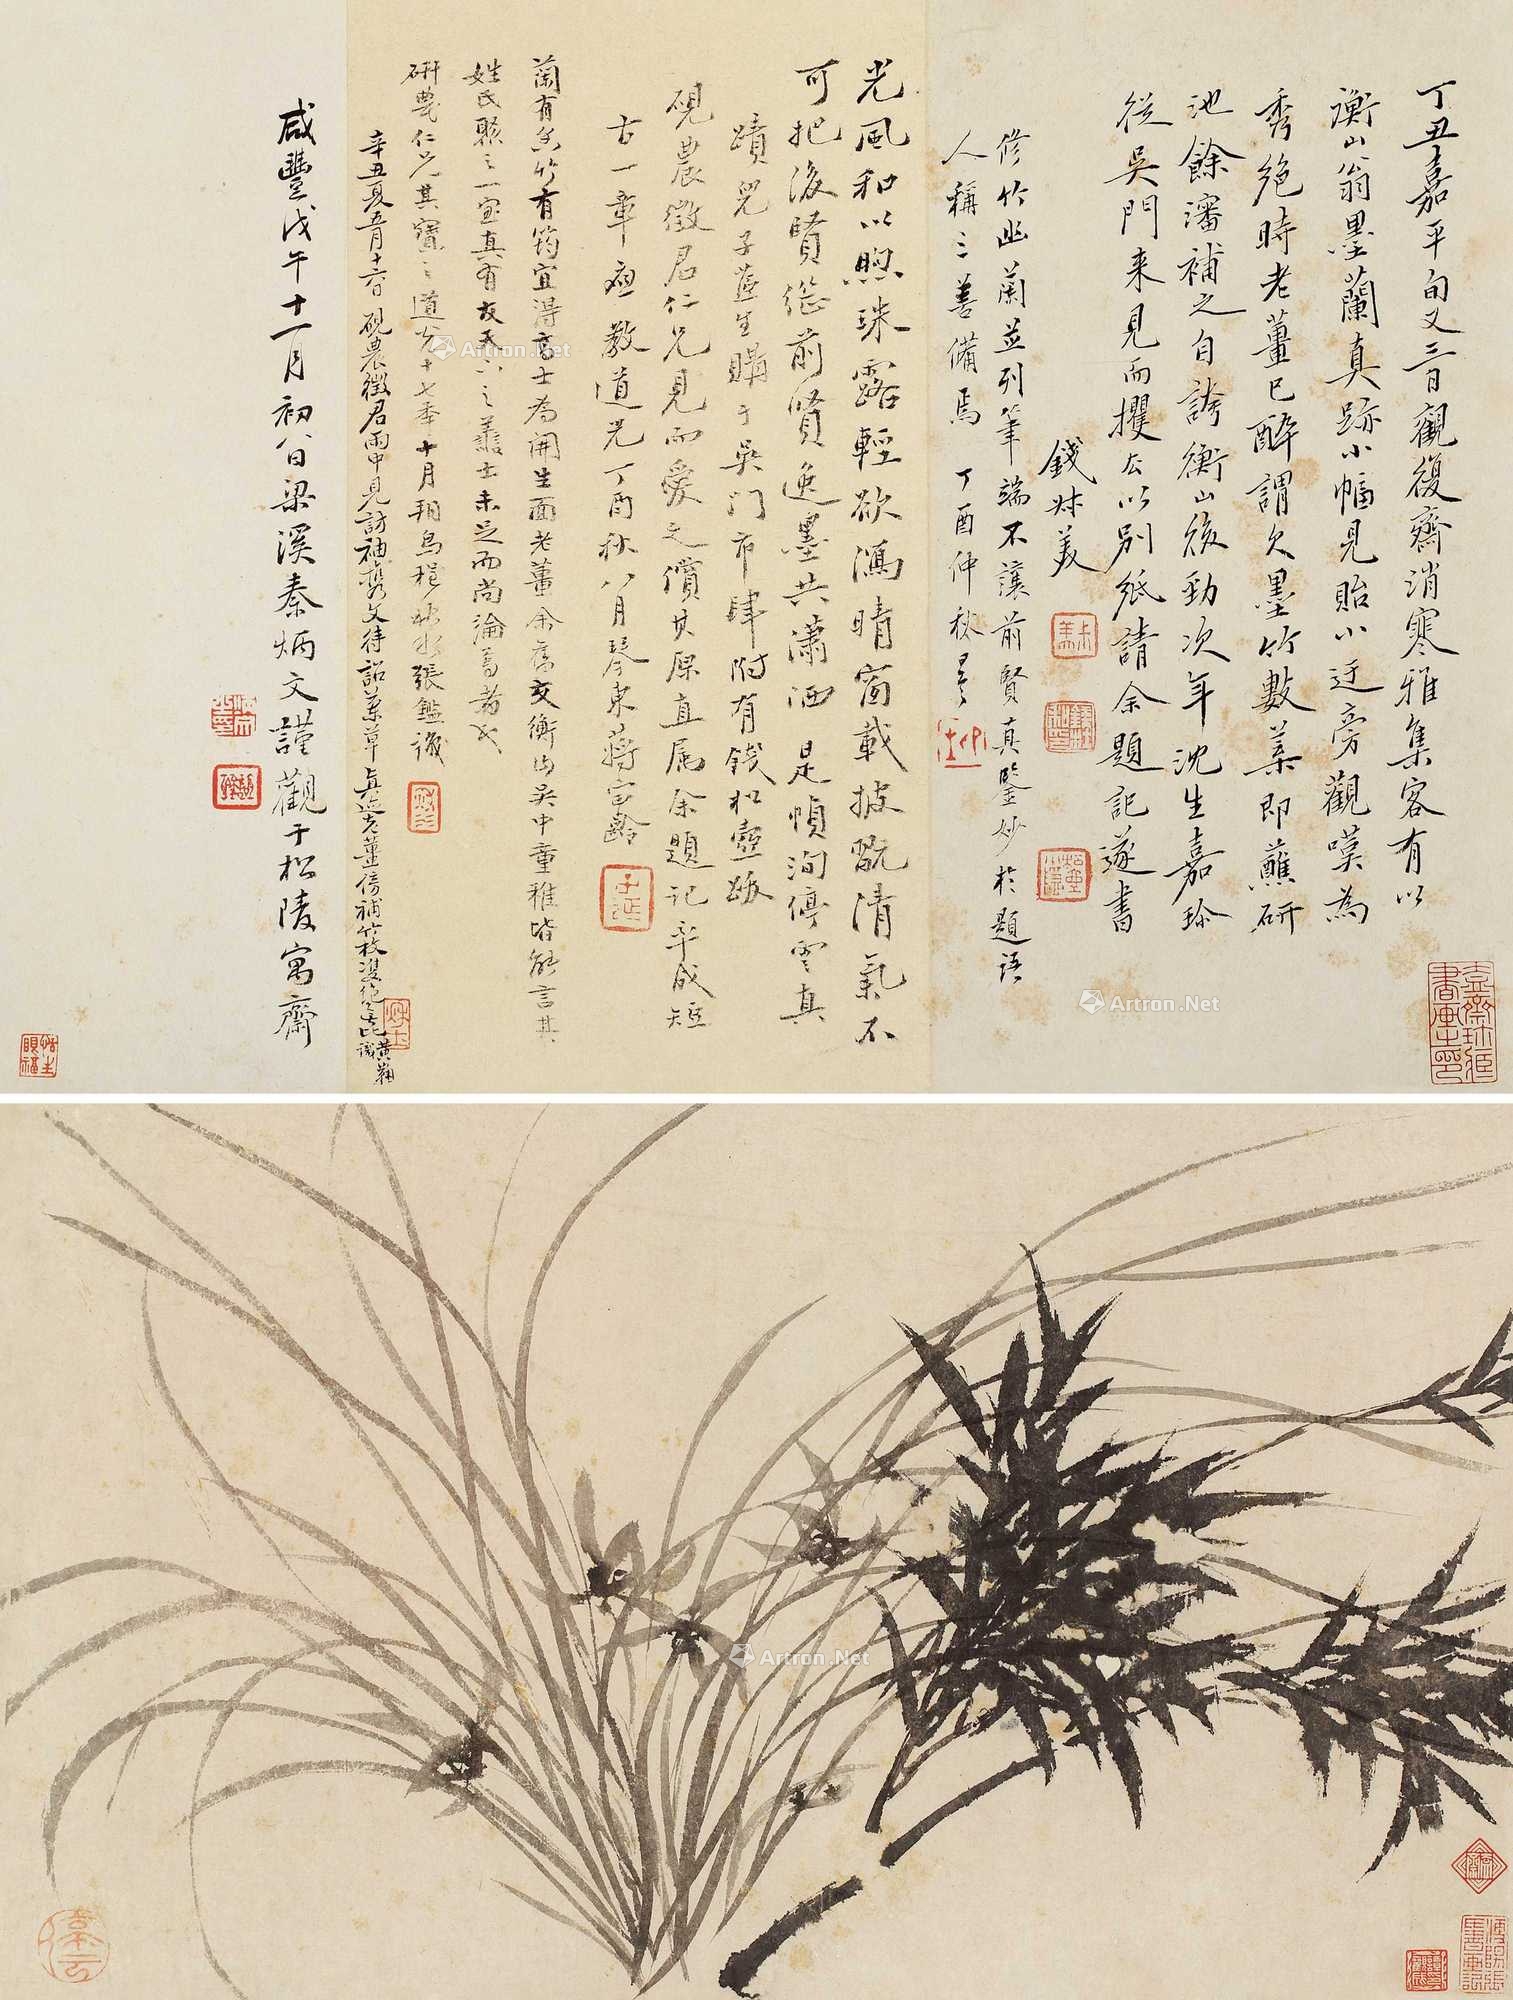 丁丑嘉平旬又三日觀復齋消寒雅集客有以
衡山翁墨蘭真跡小幅見貽小迂旁觀嘆為
秀絕時老薑已醉謂欠墨竹數葉即蘸研
池餘瀋補之自誇衡山後勁次年沈生嘉珍
從吳門來見而攫去以別紙請余題記遂書
錢叔美
修竹幽蘭並列筆端不讓前賢真鑒妙於題語
人稱三善備焉 丁酉仲秋
光風和以煦珠露輕欲瀉晴窗載披翫清氣不
可把後賢繼前賢逸墨共瀟洒是幀洵停雲真
蹟兒子蘆生購于吳門市肆附有錢松壺跋
硯農徵君仁兄見而愛之償其原直屬余題記率成短
古一章應教道光丁酉秋八月琴東蔣寶齡
蘭有香竹有筠宜得高士為開生面老薑余舊交衡山吳中童稚皆能言其
姓氏聚之一室真有友天下之善士未足而尚論焉者也
研農仁兄其寶之道光十七年十月烏程秋水張鑑識
辛丑夏五月十六日硯農徵君雨中見訪袖攜文待詔蘭草真迹老薑傍補竹枝雙絕也
黃鞠識
咸豐戊午十一月初八日梁溪秦炳文謹觀于松陵寓齋
Artron.Net
Artron.Net
Artron.Net